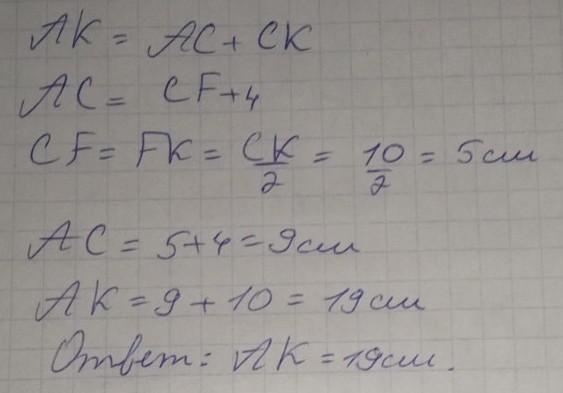 AK = AC + CK
AC = CF + 4
CF = FK = CK/2 = 10/2 = 5 см
AC = 5 + 4 = 9 см
AK = 9 + 10 = 19 см
Ответ: AK = 19 см.